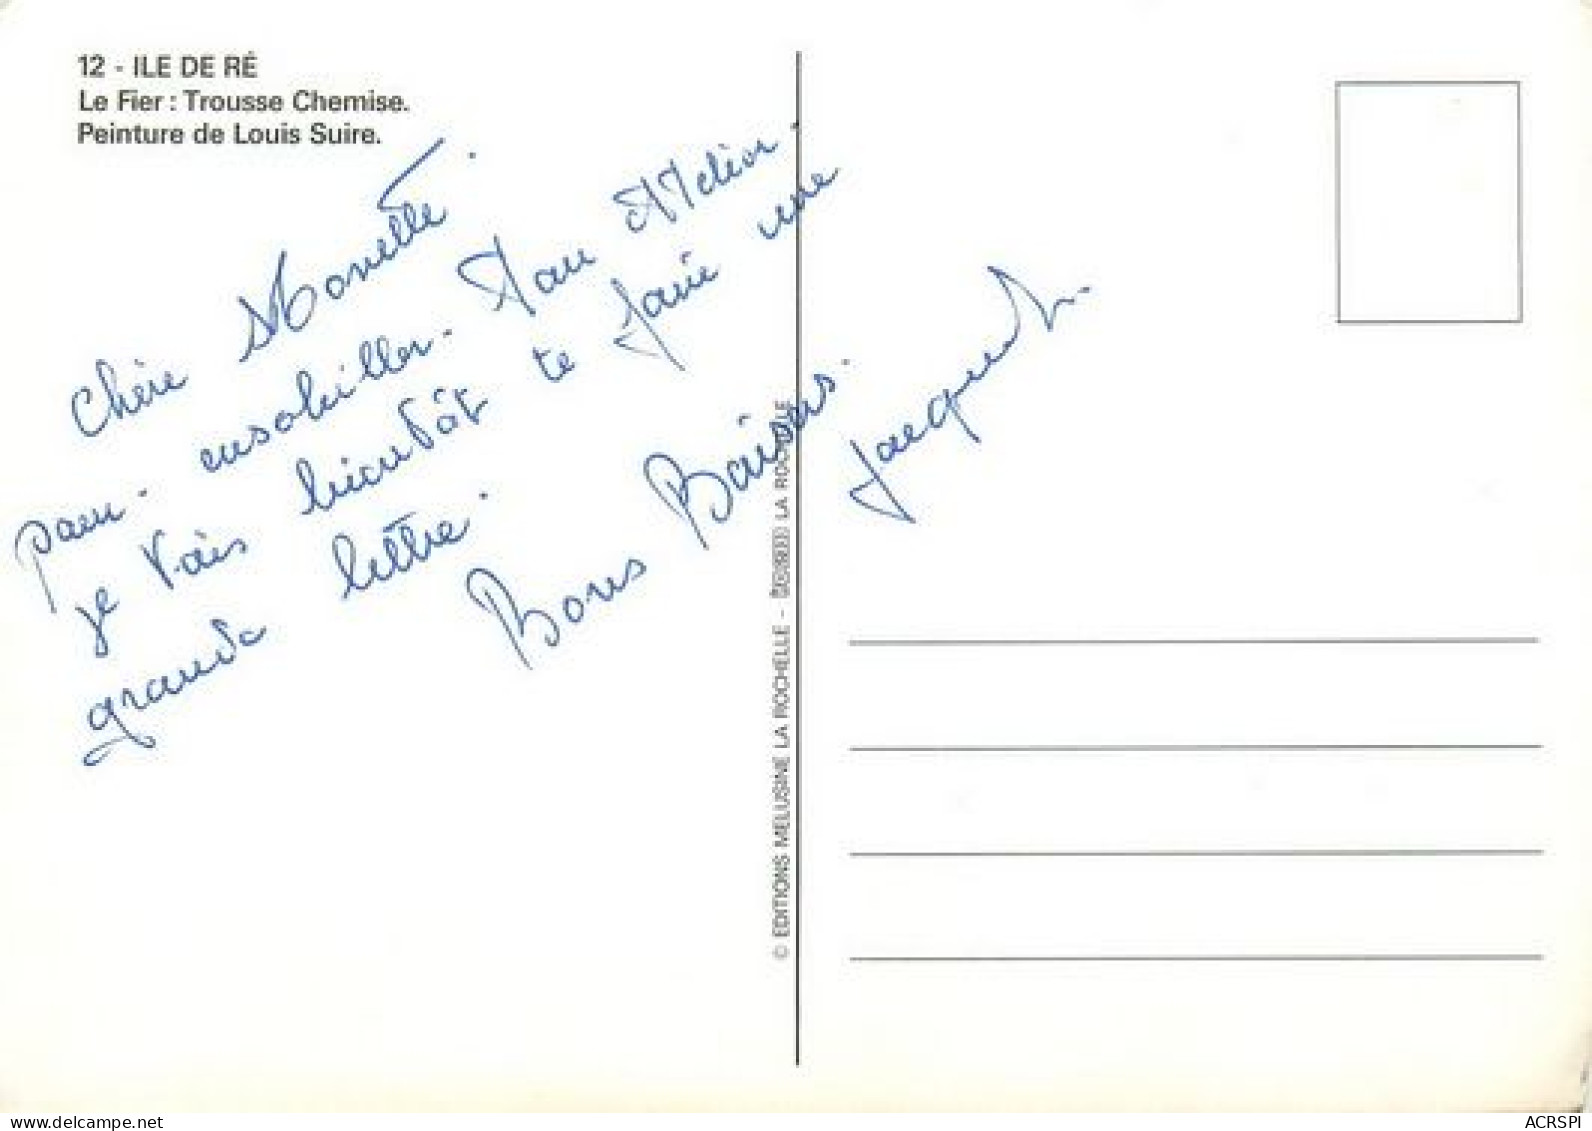 12 - ILE DE RÉ
Le Fier : Trousse Chemise.
Peinture de Louis Suire.
Chère Monette.
pour. ensoleiller. ton
je vais bientôt te faire une
grande lettre.
Bons Baisers.
© EDITIONS MELUSINE LA ROCHELLE - LA ROCHELLE
www.delcampe.net
ACRSPI